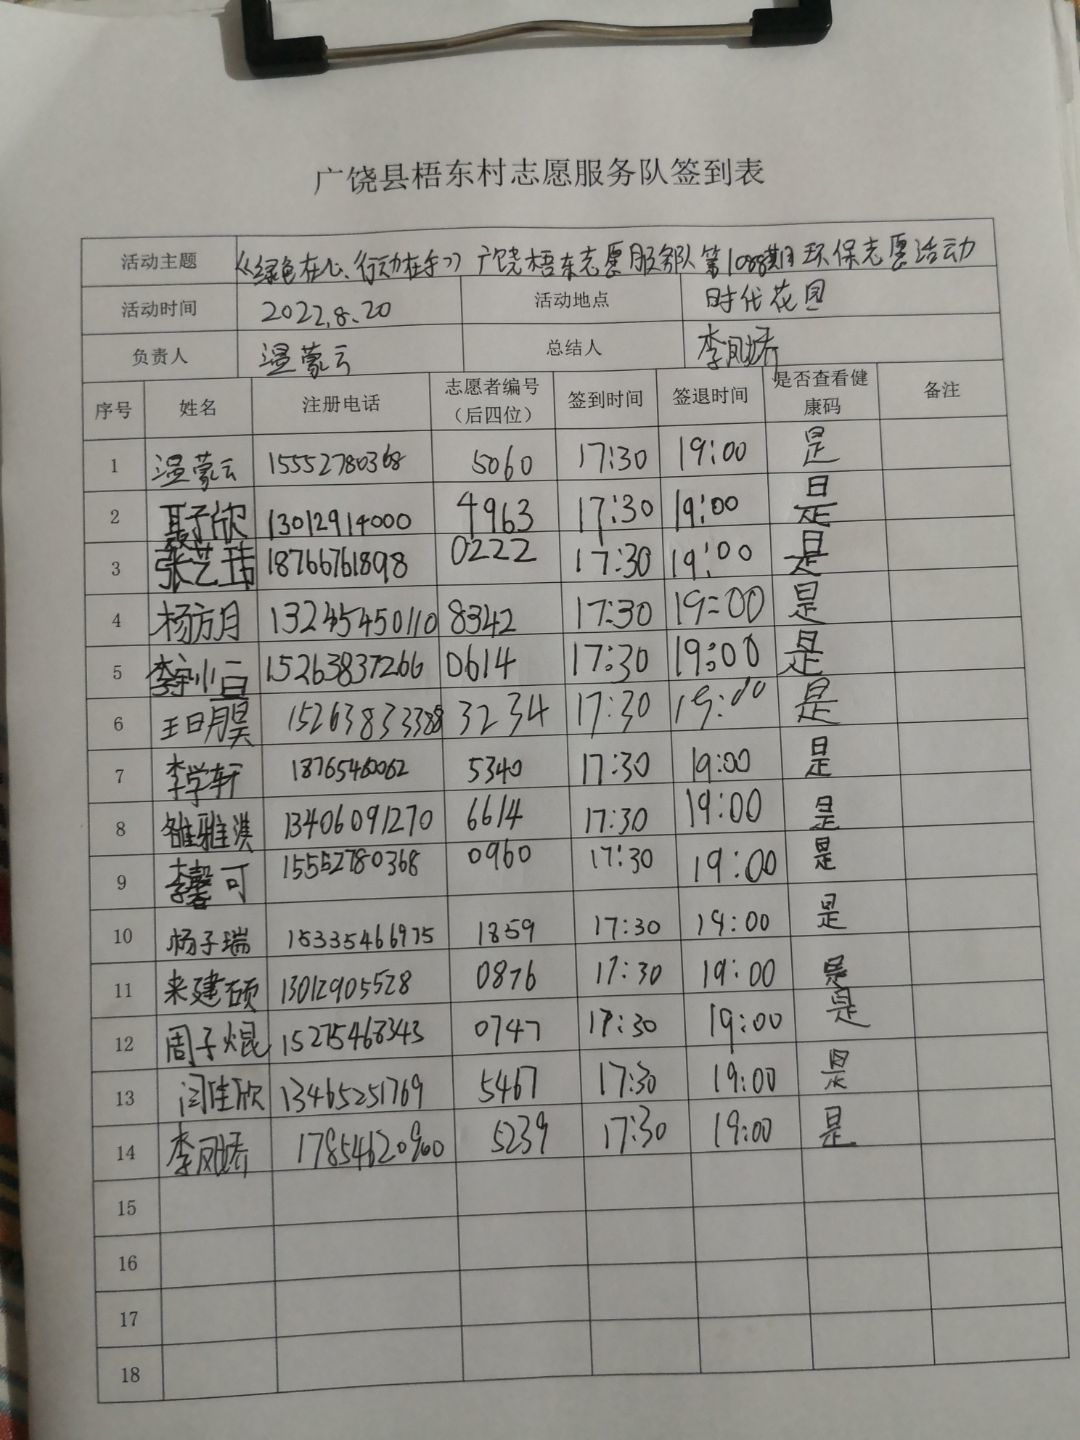 广饶县梧东村志愿服务队签到表
活动主题 《绿色在心、行动在手》广饶梧东志愿服务队第1088期环保志愿活动
活动时间 2022.8.20 活动地点 时代花园
负责人 温蒙云 总结人 李凤娇
序号 姓名 注册电话 志愿者编号（后四位） 签到时间 签退时间 是否查看健康码 备注
1 温蒙云 15552780368 5060 17:30 19:00 是
2 聂子欣 13012914000 4963 17:30 19:00 是
3 张艺玮 18766761898 0222 17:30 19:00 是
4 杨方月 13245450110 8342 17:30 19:00 是
5 15263837266 0614 17:30 19:00 是
6 王日月昊 15263833388 3234 17:30 19:00 是
7 李学轩 18765460062 5340 17:30 19:00 是
8 雒雅淇 13406091270 6614 17:30 19:00 是
9 李馨可 15552780368 0960 17:30 19:00 是
10 杨子瑞 15335466975 1859 17:30 19:00 是
11 来建硕 13012905528 0876 17:30 19:00 是
12 周子焜 15275468343 0747 17:30 19:00 是
13 闫佳欣 13465251769 5467 17:30 19:00 是
14 李凤娇 17854620900 5239 17:30 19:00 是
15
16
17
18